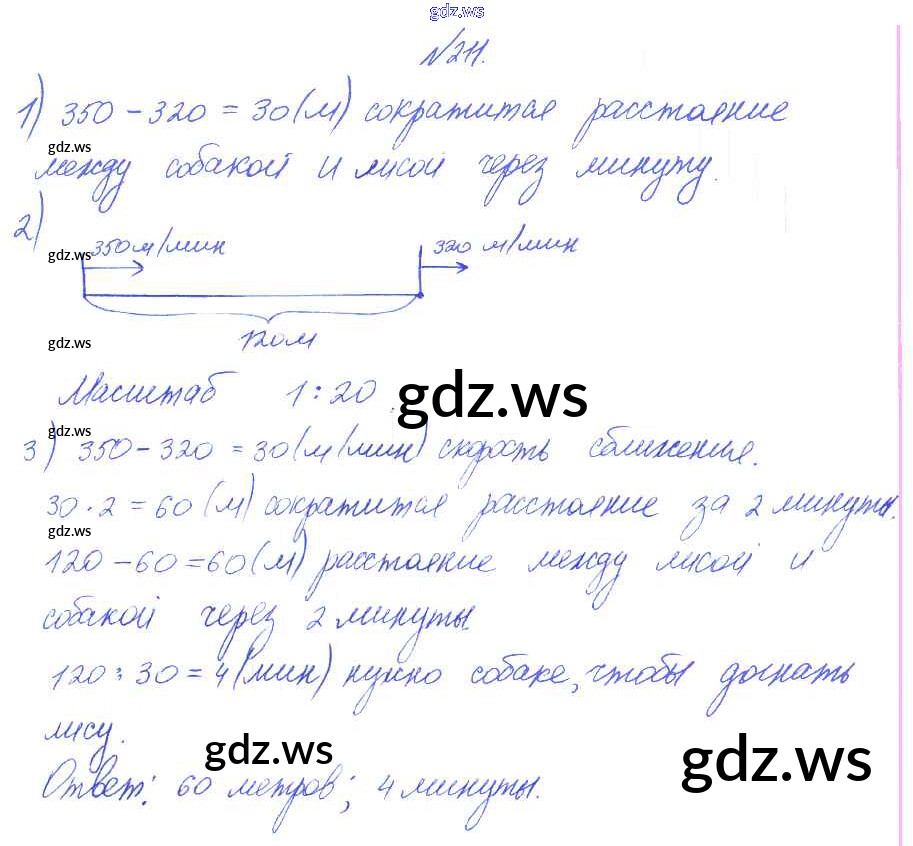 gdz.ws
№211.
1) 350 - 320 = 30 (м) сократится расстояние
gdz.ws
между собакой и лисой через минуту.
2)
350 м/мин 320 м/мин
gdz.ws
120 м
gdz.ws
Масштаб 1:20.
gdz.ws
gdz.ws
3) 350 - 320 = 30 (м/мин) скорость сближения.
30 · 2 = 60 (м) сократится расстояние за 2 минуты.
gdz.ws
120 - 60 = 60 (м) расстояние между лисой и
собакой через 2 минуты
120 : 30 = 4 (мин) нужно собаке, чтобы догнать
лису.
gdz.ws
gdz.ws
Ответ: 60 метров; 4 минуты.